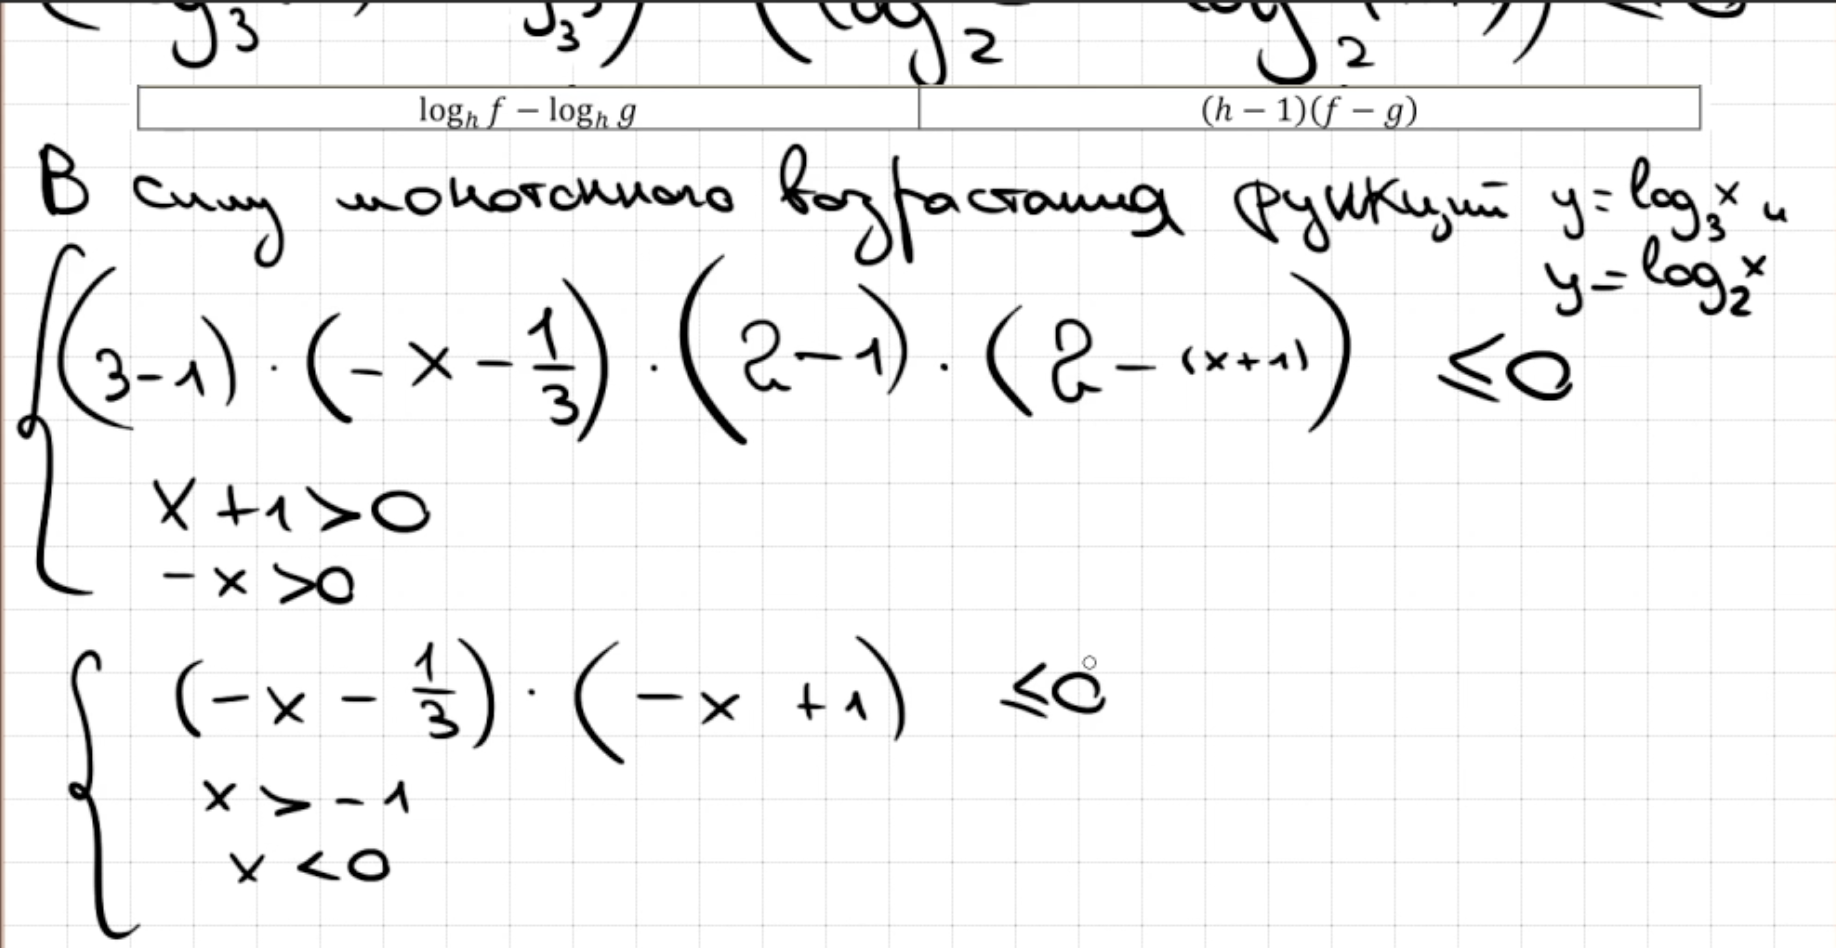 log_h f − log_h g (h − 1)(f − g)
В силу монотонного возрастания функций y = log_3 x и
y = log_2 x
(3-1) · (-x - 1/3) · (2-1) · (2 - (x+1)) ≤ 0
x + 1 > 0
-x > 0
(-x - 1/3) · (-x + 1) ≤ 0
x > -1
x < 0